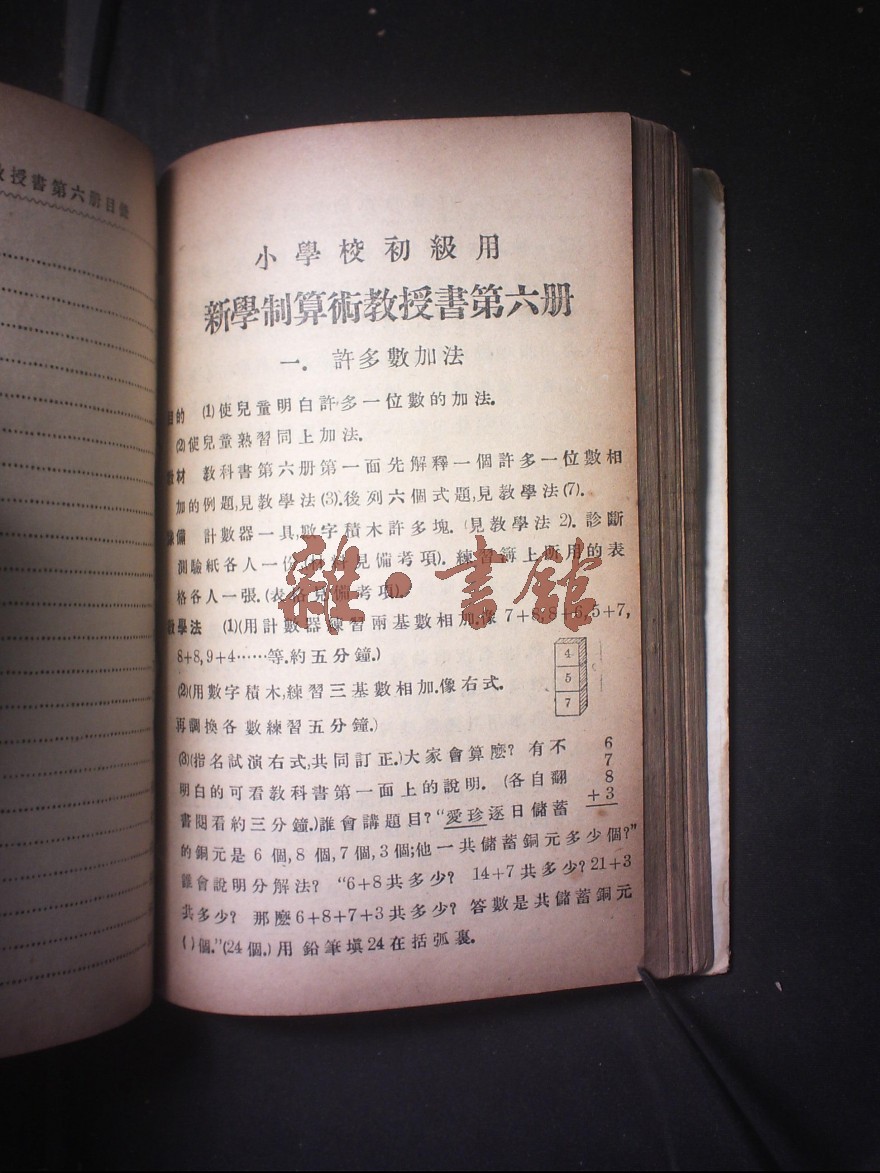 授書第六册目錄
小學校初級用
新學制算術教授書第六册
一. 許多數加法
目的 (1)使兒童明白許多一位數的加法.
(2)使兒童熟習同上加法.
教材 教科書第六册第一面先解釋一個許多一位數相
加的例題,見教學法(3).後列六個式題,見教學法(7).
準備 計數器一具,數字積木許多塊.(見教學法2). 診斷
測驗紙各人一份(材料見備考項). 練習簿上所用的表
格各人一張.(表格見備考項).
教學法 (1)(用計數器練習兩基數相加,像7+6,8+6,5+7,
8+8,9+4……等.約五分鐘.)
(2)(用數字積木,練習三基數相加.像右式.
再調換各數練習五分鐘.)
4
5
7
(3)(指名試演右式,共同訂正.)大家會算麽? 有不
明白的可看教科書第一面上的說明. (各自翻
書閱看約三分鐘.)誰會講題目?“愛珍逐日儲蓄
6
7
8
+3
的銅元是6個,8個,7個,3個;他一共儲蓄銅元多少個?”
誰會說明分解法? “6+8共多少? 14+7共多少?21+3
共多少? 那麽6+8+7+3共多少? 答數是共儲蓄銅元
( )個.”(24個.)用鉛筆填24在括弧裏.
雜·書館